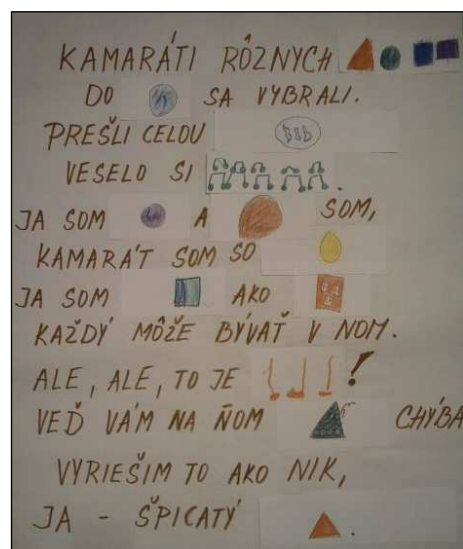 KAMARÁTI RÔZNYCH
DO SA VYBRALI.
PREŠLI CELOU
VESELO SI .
JA SOM A SOM,
KAMARÁT SOM SO
JA SOM AKO
KAŽDÝ MÔŽE BÝVAŤ V ŇOM.
ALE, ALE, TO JE !
VEĎ VÁM NA ŇOM CHÝBA
VYRIEŠIM TO AKO NIK,
JA - ŠPICATÝ .